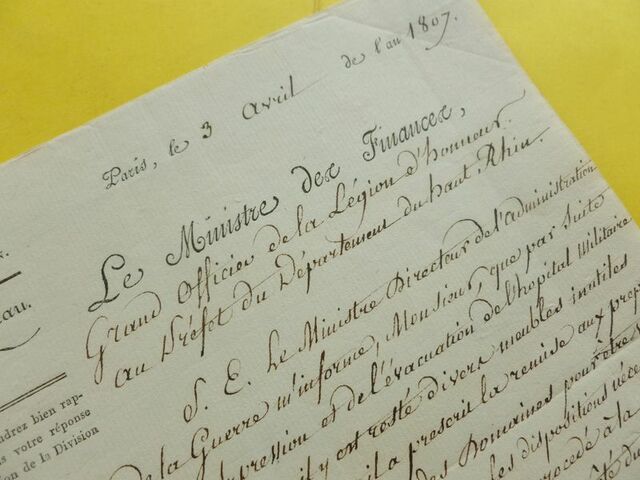 Paris, le 3 Avril de l'an 1807.
Le Ministre des Finances,
Grand Officier de la Légion d'honneur.
au Préfet du Département du haut Rhin.
S. E. Le Ministre Directeur de l'administration
de la Guerre m'informe, Monsieur, que par suite
pression et de l'évacuation de l'hopital Militaire
il y est resté divers meubles inutiles
il a prescrit la remise aux prep
des Domaines pour être
les dispositions néce
procédé à la
eau.
drez bien rap-
s votre réponse
on de la Division